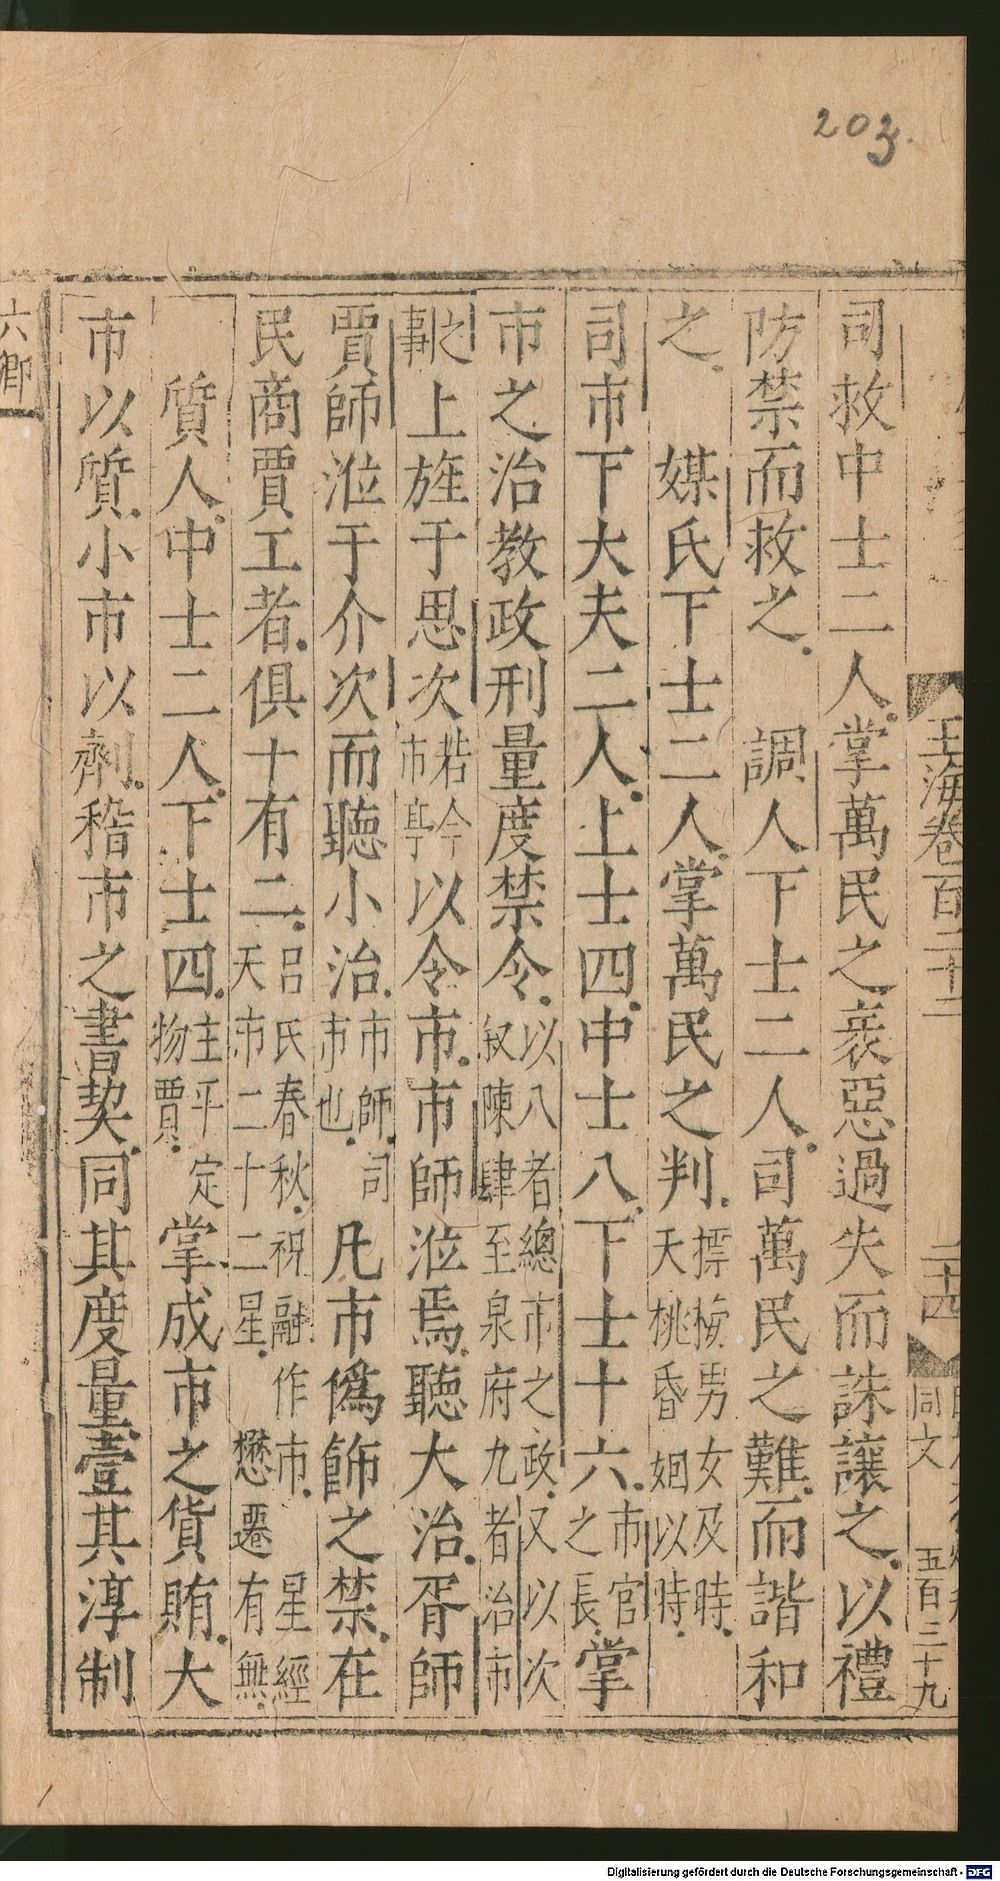 203
玉海卷一百二十二
二十四
同文
五百三十九
司救中士二人掌萬民之衺惡過失而誅讓之以禮
防禁而救之　調人下士二人司萬民之難而諧和
之　媒氏下士二人掌萬民之判摽梅男女及時天桃昏姻以時
司市下大夫二人上士四中士八下士十六市官之長掌
市之治教政刑量度禁令以八者總市之政又以次叙陳肆至泉府九者治市
之事上旌于思次若今市亭以令市市師涖焉聽大治胥師
賈師涖于介次而聽小治市師司市也凡市僞飾之禁在
民商賈工者俱十有二呂氏春秋祝融作市星經天市二十二星懋遷有無
質人中士二人下士四主平定物賈掌成市之貨賄大
市以質小市以劑稽市之書契同其度量壹其淳制
六卿
Digitalisierung gefördert durch die Deutsche Forschungsgemeinschaft - DFG